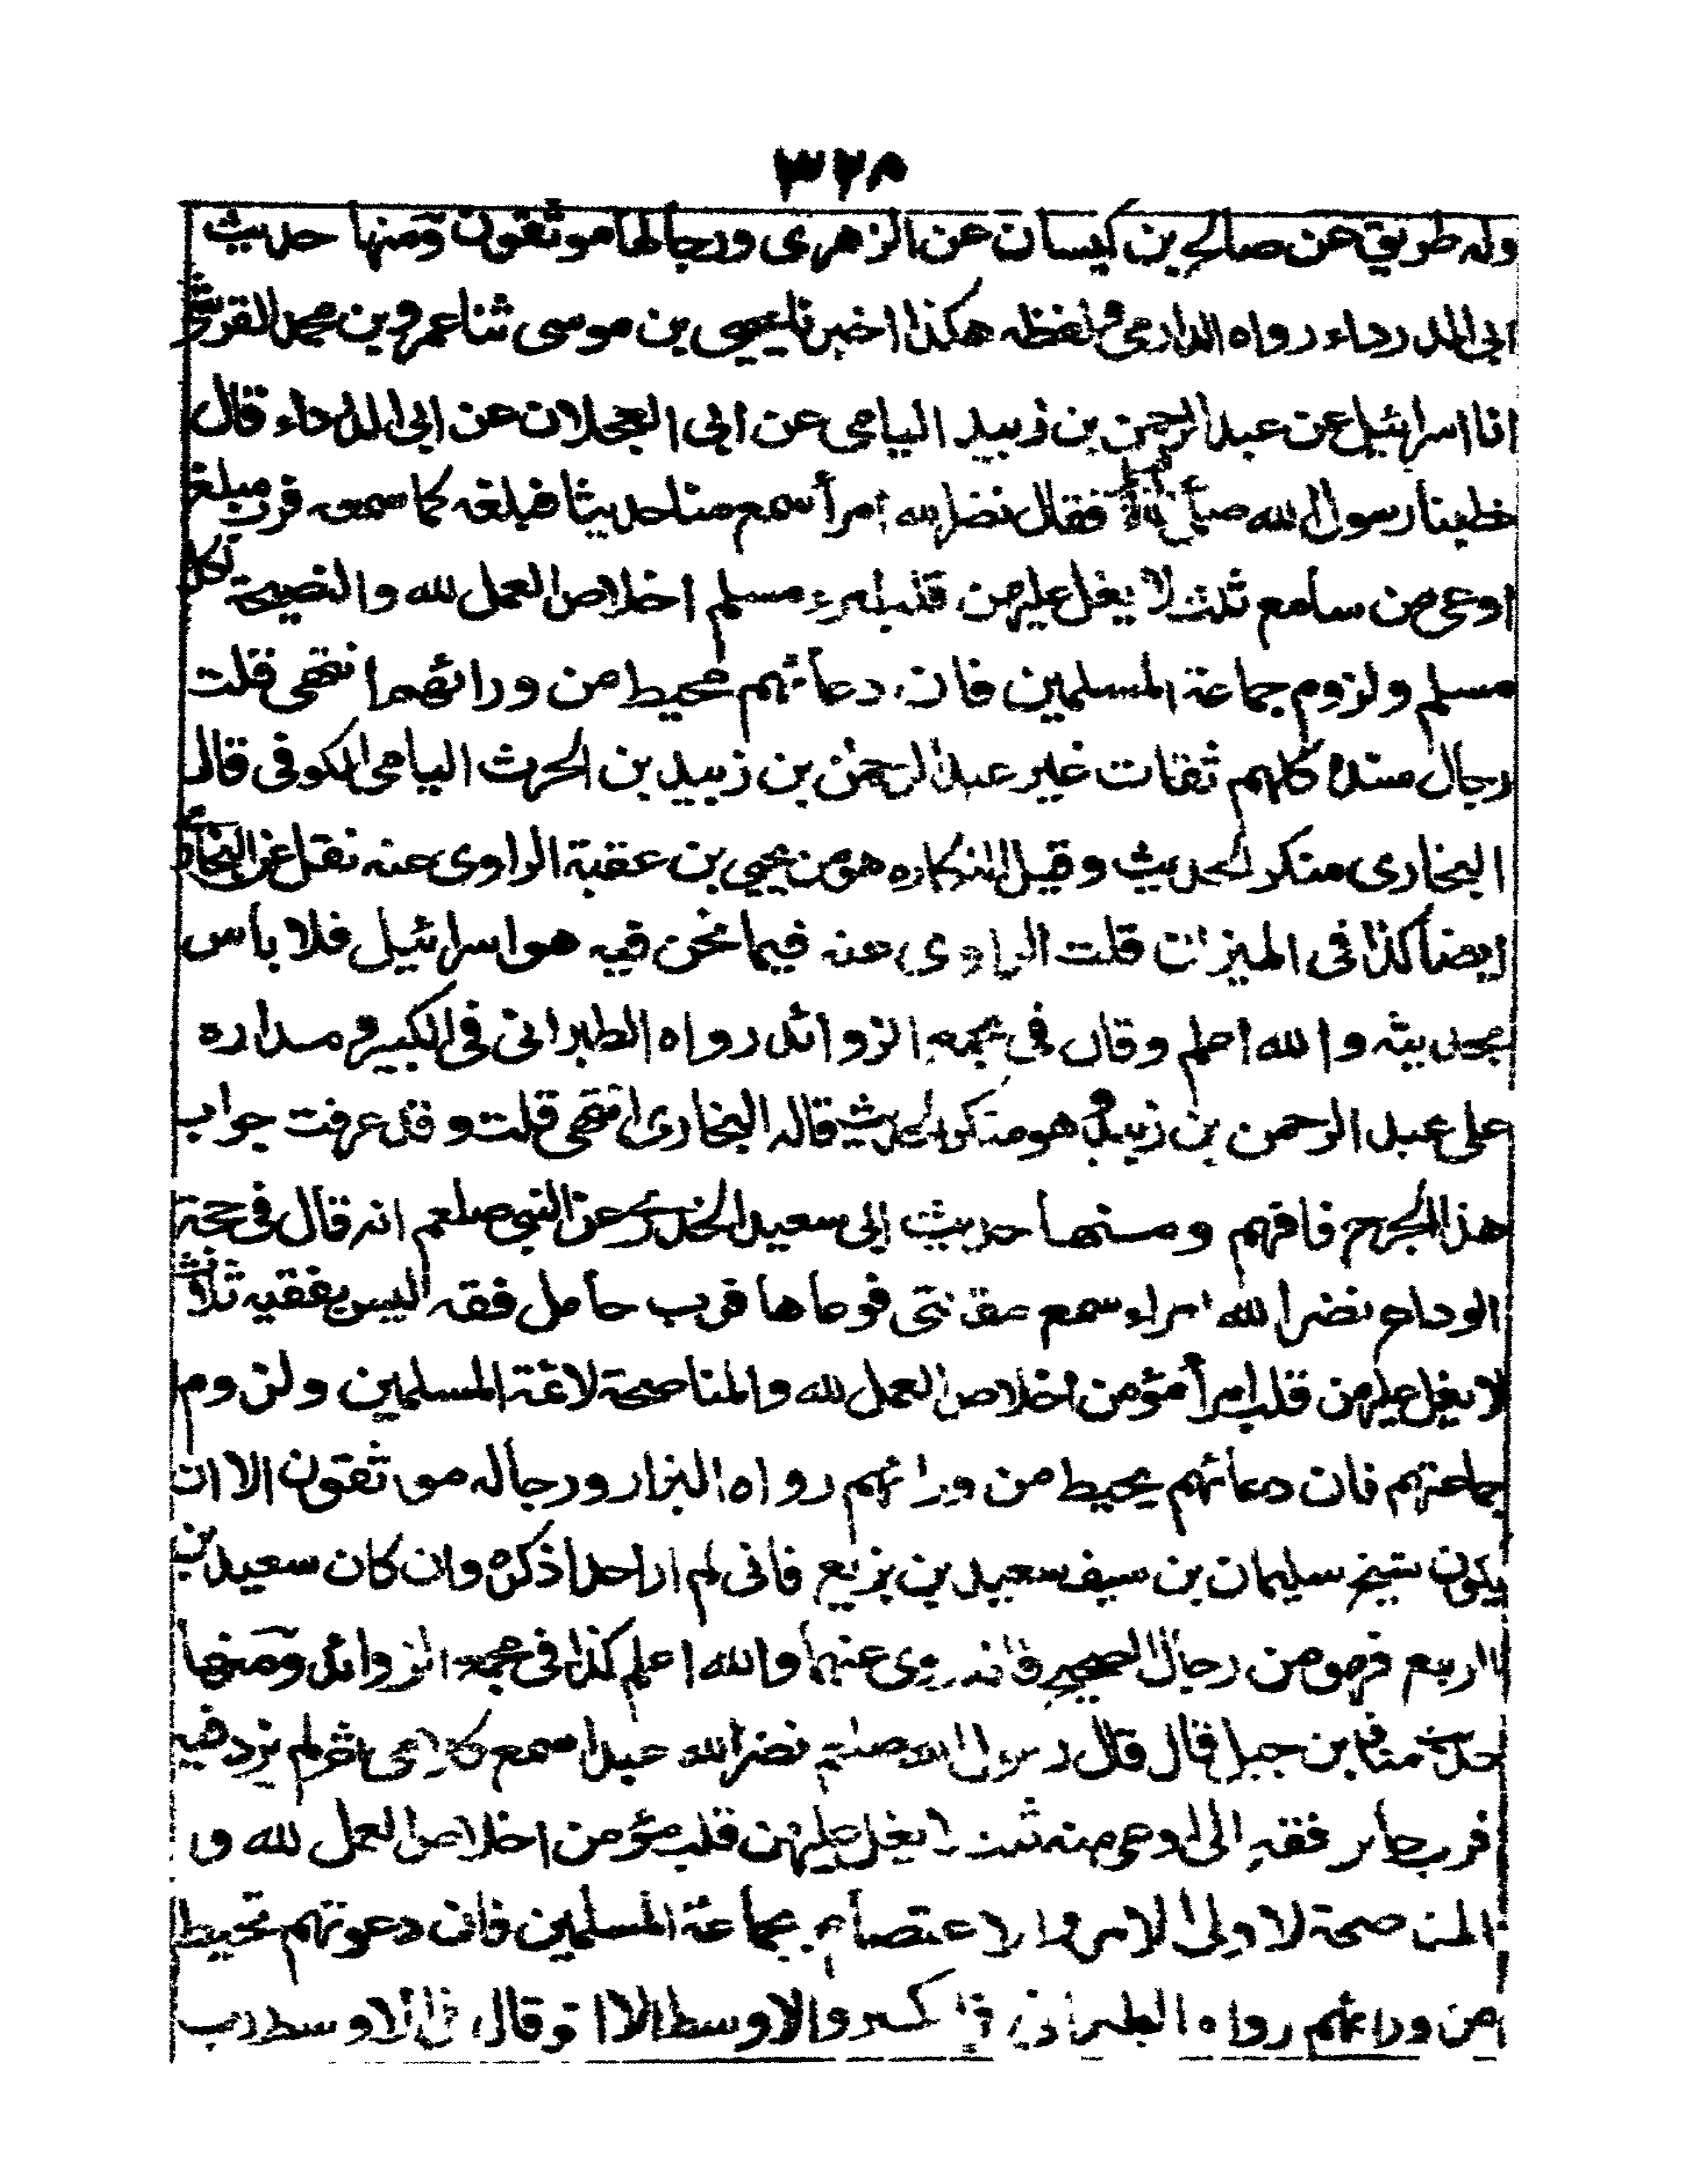 ٣٢٨
وله طريق عن صالح بن كيسان عن الزهرى ورجالها موثقون ومنها حديث
ابى الدرداء رواه الدارمى ولفظه هكذا اخبرنا يحيى بن موسى ثنا عمرو بن محمد القرشى
انا اسرائيل عن عبد الرحمن بن زبيد اليامى عن ابى العجلان عن ابى الدرداء قال
خطبنا رسول الله صلى الله فقال نضر الله امرأ سمع منا حديثا فبلغه كما سمعه فرب مبلغ
اوعى من سامع ثلث لا يغل عليهن قلب امرء مسلم اخلاص العمل لله والنصيحة لكل
مسلم ولزوم جماعة المسلمين فان دعائهم محيط من ورائهم انتهى قلت
رجال سنده كلهم ثقات غير عبد الرحمن بن زبيد بن الحرث اليامى الكوفى قال
البخارى منكر الحديث وقيل النكاره هو من يحيى بن عقبة الراوى عنه نقل عن البخارى
ايضا كذا فى الميزان قلت الراوى عنه فيما نحن فيه هو اسرائيل فلا باس
بحديثه والله اعلم وقال فى مجمع الزوائد رواه الطبرانى فى الكبير ومداره
على عبد الرحمن بن زبيد وهو منكر الحديث قاله البخارى انتهى قلت وقد عرفت جواب
هذا الجرح فافهم ومنها حديث ابى سعيد الخدرى عن النبى صلعم انه قال فى حجة
الوداع نضر الله امراء سمع مقالتى فوعاها فرب حامل فقه ليس بفقيه ثلاث
لا يغل عليهن قلب امرأ مؤمن اخلاص العمل لله والمناصحة لائمة المسلمين ولزوم
جماعتهم فان دعائهم يحيط من ورائهم رواه البزار ورجاله موثقون الا ان
يكون شيخ سليمان بن سيف سعيد بن بزيع فانى لم ار احدا ذكره وان كان سعيد بن
الربيع فهو من رجال الصحيح فانه روى عنهما والله اعلم كذا فى مجمع الزوائد ومنها
حديث معاذ بن جبل قال قال رسول الله صلعم نضر الله عبدا سمع كلامى ثم لم يزد فيه
فرب حامل فقه الى اوعى منه ثلث لا يغل عليهن قلب مؤمن اخلاص العمل لله و
المناصحة لاولى الامر والاعتصام بجماعة المسلمين فان دعوتهم تحيط
من ورائهم رواه الطبرانى فى الكبير والاوسط الا انه قال فى الاوسط رب